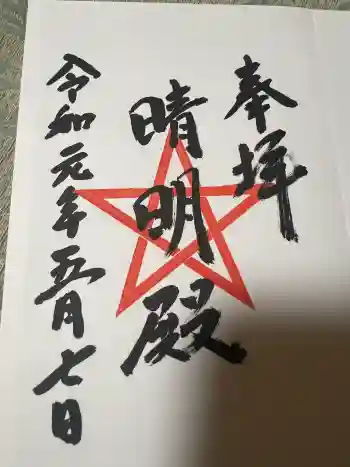 奉拝
晴明殿
令和元年五月七日